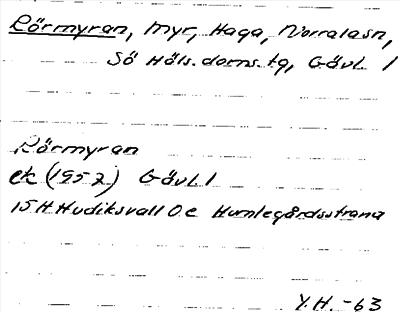 Rörmyran, myr, Haga, Norralasn,
Sö Häls. doms. tg, Gävl l
Rörmyran
ek (1952) Gävl l
15 H Hudiksvall 0 c Humlegårdsstrand
Y.H. -63